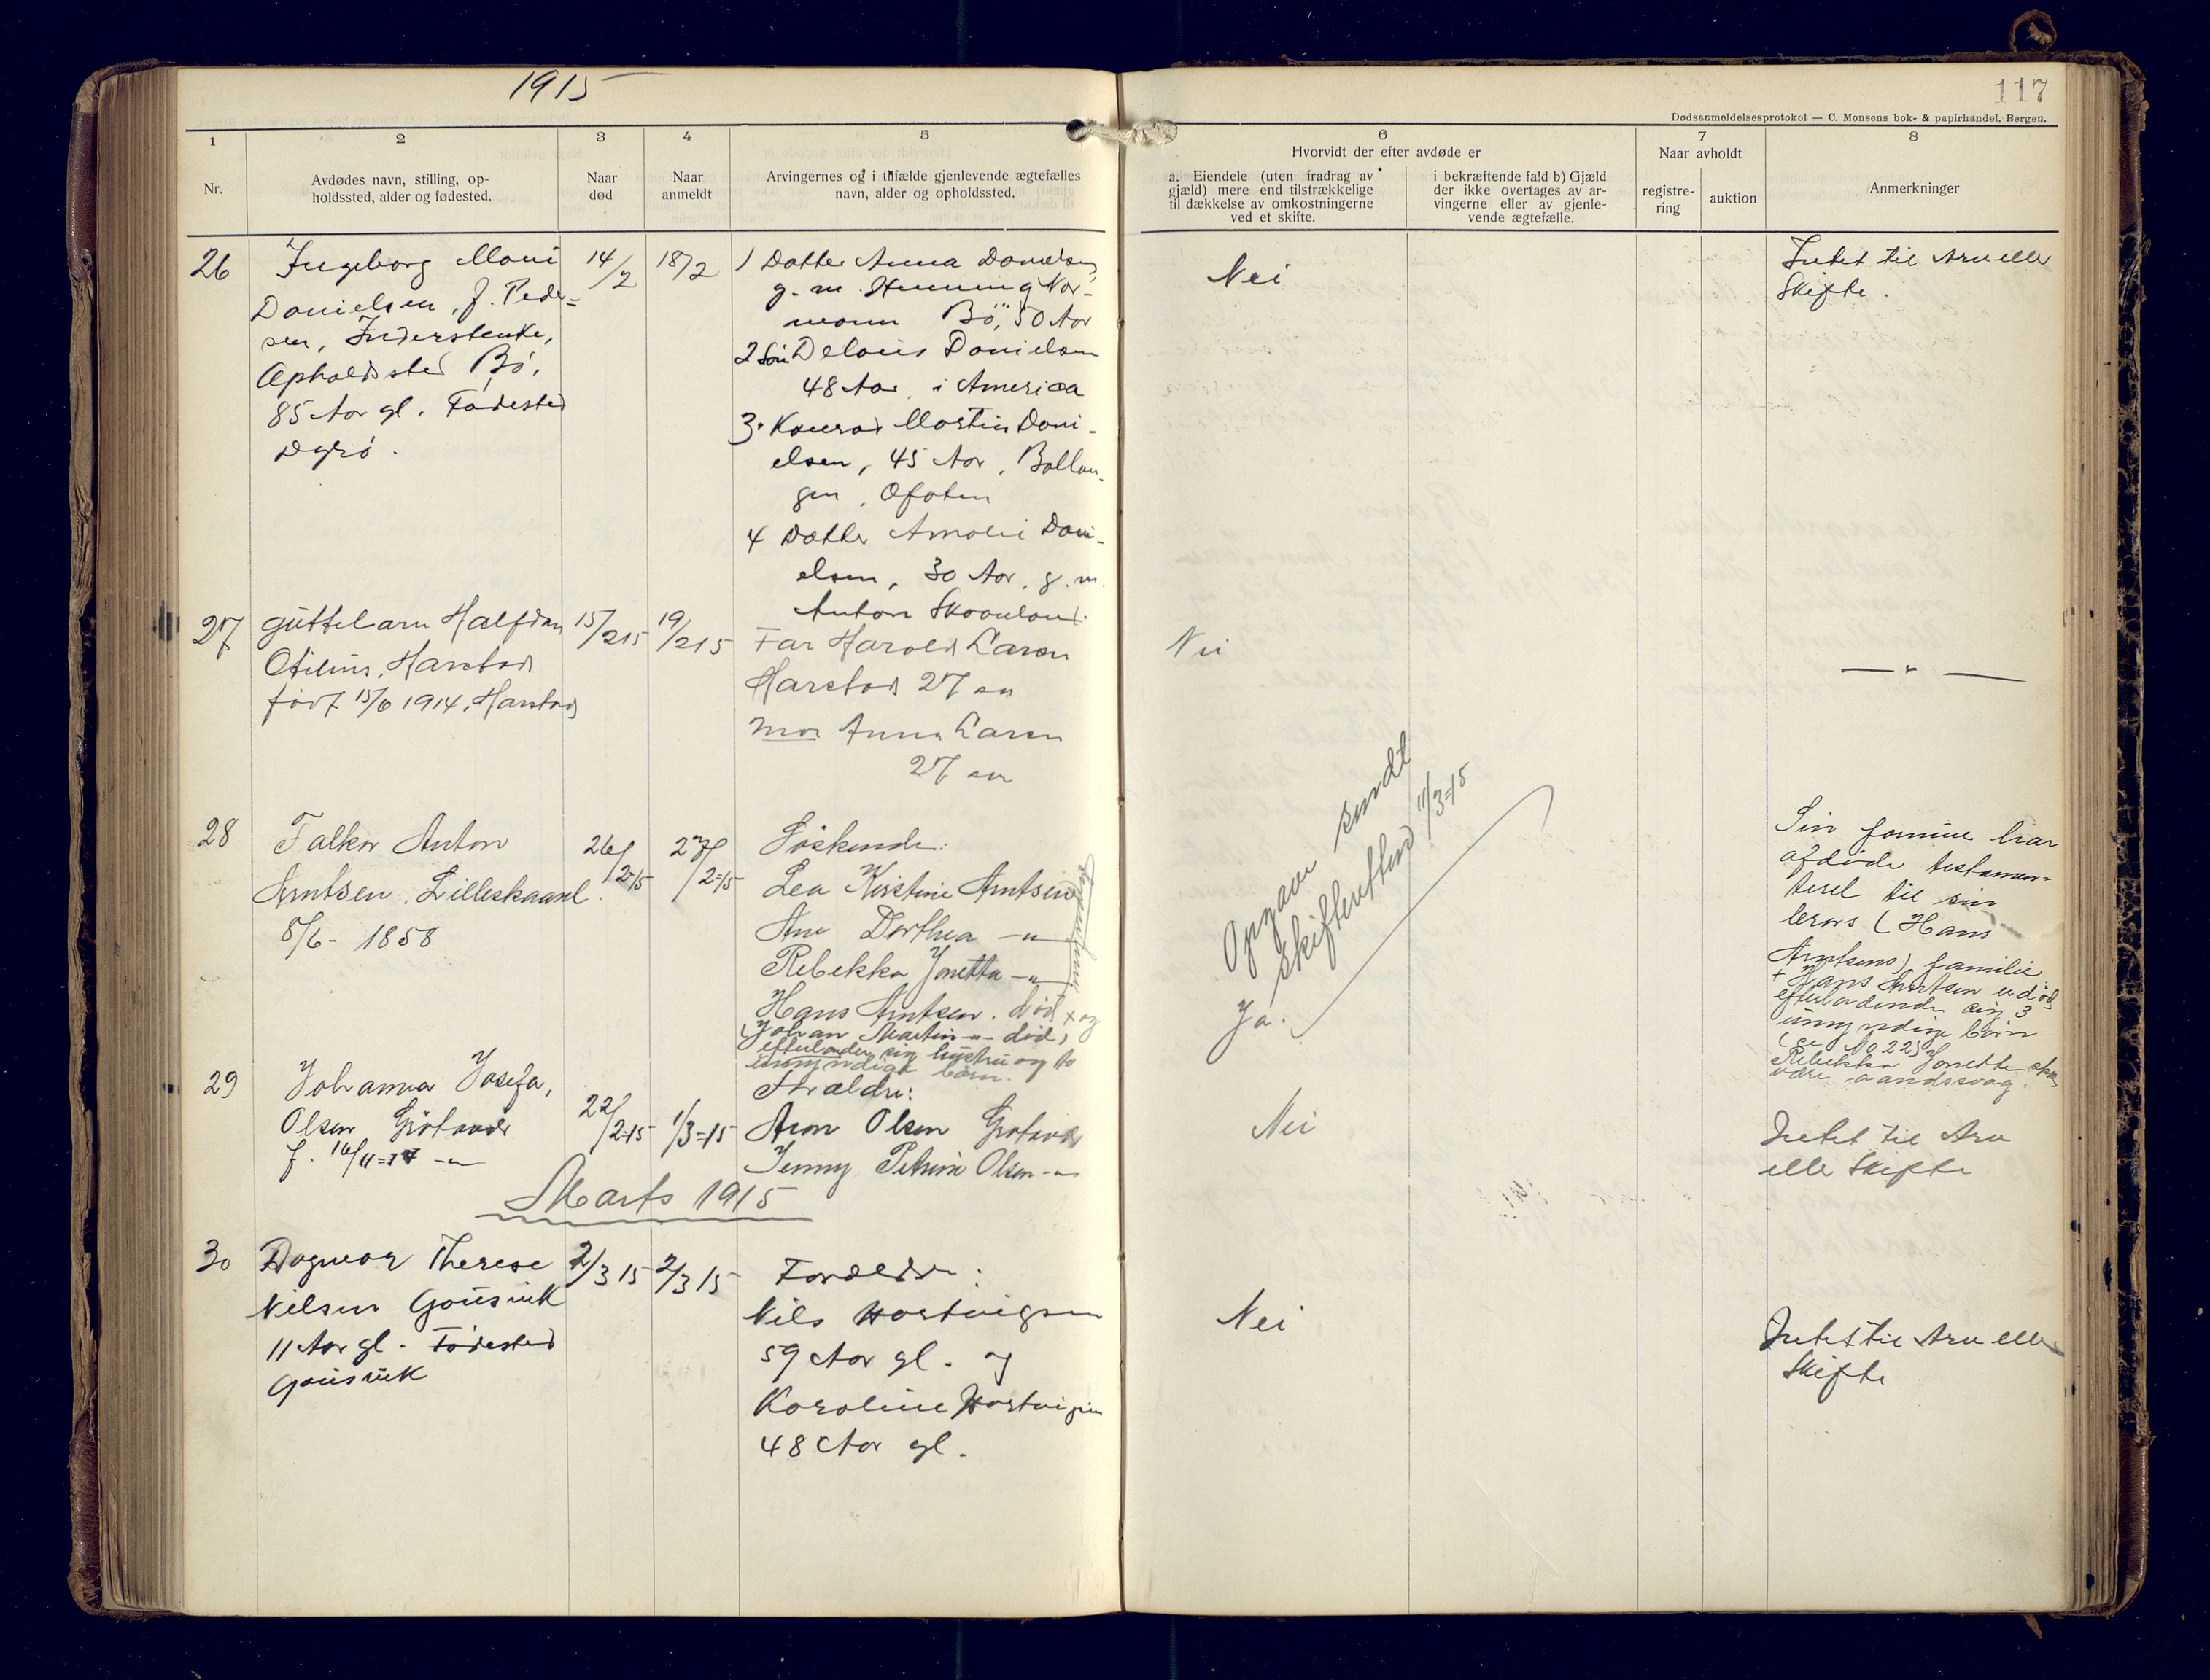 1915
117
Dødsanmeldelsesprotokol — C. Monsens bok- & papirhandel, Bergen.
1
2
3
4
5
6
7
8
Nr.
Avdødes navn, stilling, op-
holdssted, alder og fødested.
Naar
død
Naar
anmeldt
Arvingernes og i tilfælde gjenlevende ægtefælles
navn, alder og opholdssted.
Hvorvidt der efter avdøde er
a. Eiendele (uten fradrag av
gjæld) mere end tilstrækkelige
til dækkelse av omkostningerne
ved et skifte.
i bekræftende fald b) Gjæld
der ikke overtages av ar-
vingerne eller av gjenle-
vende ægtefælle.
Naar avholdt
registre-
ring
auktion
Anmerkninger
26
Ingeborg Mari
Danielsen, f. Peder=
sen, Inderstenke,
Opholdssted Bø.
85 Aar gl. Fødested
Dyrø.
14/2
18/2
1 Datter Anna Danielsen
g. m. Henning Nor-
mann Bø, 50 Aar
2 Søn Delavis Danielsen
48 Aar i America
3. Konrad Martin Dani-
elsen, 45 Aar, Ballan-
gen, Ofoten
4 Datter Amalie Dani-
elsen, 30 Aar, g. m.
Anton Skoveland.
Nei
Intet til Arv eller
Skifte.
27
Guttelarn Halfdan
Otilius, Harstad
født 15/6 1914, Harstad
15/2 15
19/2 15
Far Harald Larsen
Harstad 27 aar
Mor Anna Larsen
27 aar
Nei
— " —
28
Falkor Anton
Arntsen, Lilleskaanl.
8/6 - 1858
26/2-15
27/2-15
Søskende:
Lea Kirstine Arntsen
Ane Dorthea —"—
Rebekka Jonetta —"—
Hans Arntsen. død + og
(Johan Martin —"— død)
efterlader sig hustru og to
umyndige børn.
Opgave sendt
Skifteretten 11/3-15
Ja.
Sin formue har
afdøde testamen-
terel til sin
brors (Hans
Arntsens) familie
+ Hans Arntsen er død
efterladende sig 3
umyndige børn
(se No 22)
Rebekka Jonette skal
være aandssvag.
29
Johanna Josefa,
Olsen Grøtavær
f. 16/11-14 —"—
22/2-15
1/3-15
Forældre:
Aron Olsen Grøtavær
Jenny Petrine Olsen —"—
Nei
Intet til Arv
eller Skifte
Marts 1915
30
Dagmar Therese
Nilsen Gausvik
11 Aar gl. Fødested
Gausvik
2/3 15
2/3 15
Forældre:
Nils Hartvigsen
59 Aar gl. og
Karoline Hartvigsen
48 Aar gl.
Nei
Intet til Arv eller
Skifte